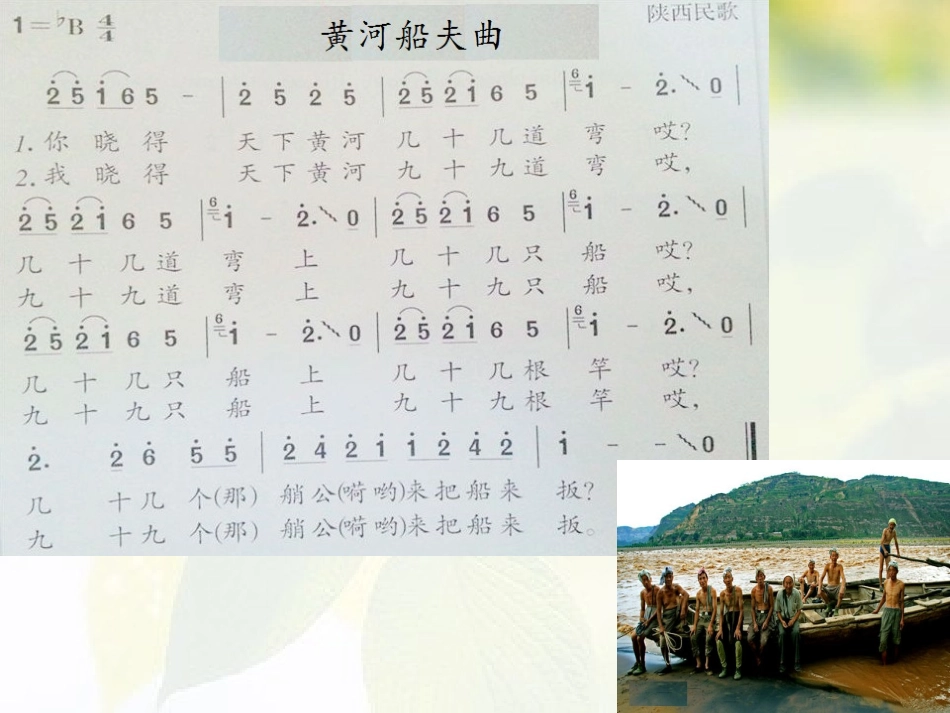 1=♭B 4/4
黄河船夫曲
陕西民歌
2̇ 5̇ 1̇ 6 5 - | 2̇ 5 2̇ 5 | 2̇ 5̇ 2̇ 1̇ 6 5 | 6 1̇ - 2̇. 0 |
1.你 晓 得 天 下 黄 河 几 十 几 道 弯 哎?
2.我 晓 得 天 下 黄 河 九 十 九 道 弯 哎,
2̇ 5̇ 2̇ 1̇ 6 5 | 6 1̇ - 2̇. 0 | 2̇ 5̇ 2̇ 1̇ 6 5 | 6 1̇ - 2̇. 0 |
几 十 几 道 弯 上 几 十 几 只 船 哎?
九 十 九 道 弯 上 九 十 九 只 船 哎,
2̇ 5̇ 2̇ 1̇ 6 5 | 6 1̇ - 2̇. 0 | 2̇ 5̇ 2̇ 1̇ 6 5 | 6 1̇ - 2̇. 0 |
几 十 几 只 船 上 几 十 几 根 竿 哎?
九 十 九 只 船 上 九 十 九 根 竿 哎,
2̇. 2̇ 6̇ 5̇ 5̇ | 2̇ 4̇ 2̇ 1̇ 1̇ 2̇ 4̇ 2̇ | 1̇ - - 0
几 十 几 个(那) 艄 公(嗬 哟)来 把 船 来 扳?
九 十 九 个(那) 艄 公(嗬 哟)来 把 船 来 扳。